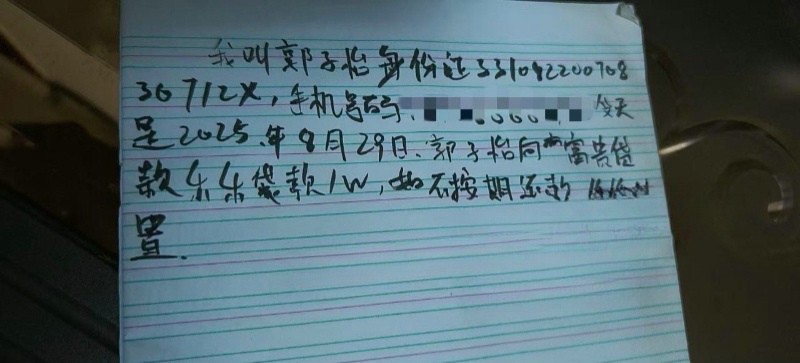 我叫郭子怡身份证331082200708
30712X，手机号码 000 今天
是2025.年8月29日.郭子怡向富贵贷
款乐乐贷款1W，如不按期还款
置.